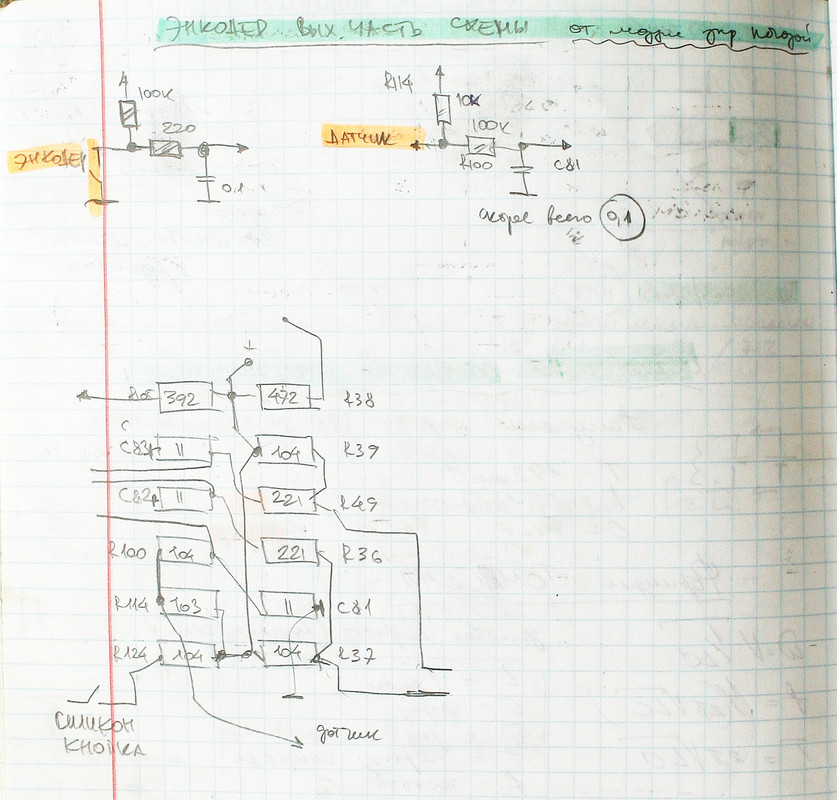 ЭНКОДЕР ВЫХ. ЧАСТЬ СХЕМЫ от модуля упр погодой
100К
220
ЭНКОДЕР
0.1
R114
10К
100К
ДАТЧИК
R100
C81
скорее всего 0,1
392
472
R38
C83
104
R39
C82
221
R49
R100
104
221
R36
R114
103
C81
R124
104
104
R37
СИЛИКОН
КНОПКА
датчик